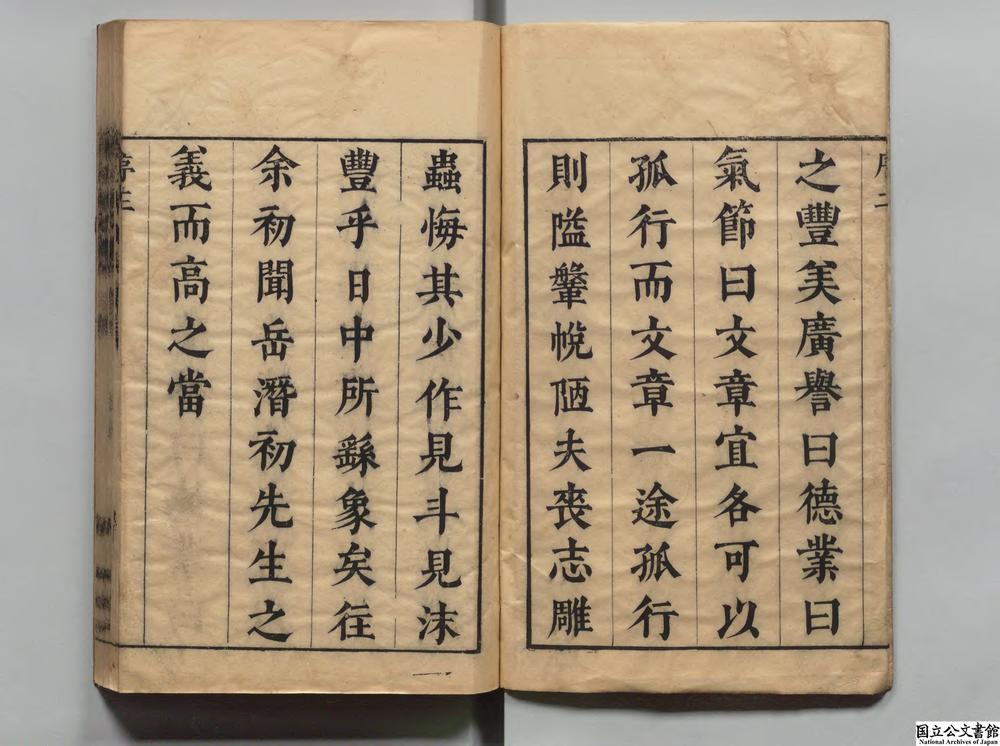 之豐美廣譽曰德業曰
氣節曰文章宜各可以
孤行而文章一途孤行
則隘鞶帨陋夫喪志雕
蟲悔其少作見斗見沬
豐乎日中所繇象矣往
余初聞岳潛初先生之
義而高之當
国立公文書館
National Archives of Japan